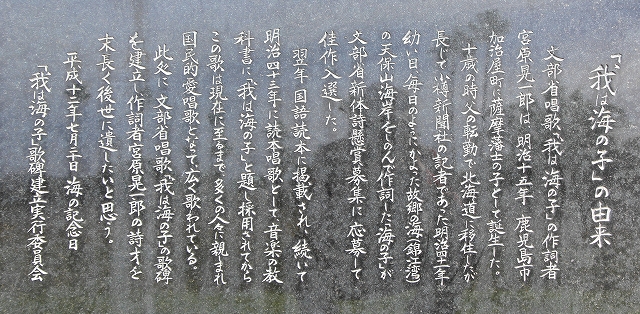 「我は海の子」の由来
文部省唱歌「我は海の子」の作詞者
宮原晃一郎は、明治十五年、鹿児島市
加治屋町に薩摩藩士の子として誕生した。
十歳の時、父の転勤で北海道に移住したが
長じて小樽新聞社の記者であった明治四十一年
幼い日、毎日のようにかよった故郷の海（錦江湾）
の天保山海岸をしのんで作詞した「海の子」が
文部省新体詩懸賞募集に応募して
佳作入選した。
翌年、国語読本に掲載され、続いて
明治四十三年に読本唱歌として、音楽の教
科書に「我は海の子」と題し採用されてから
この歌は現在に至るまで、多くの人々に親しまれ
国民的愛唱歌となって広く歌われている。
此処に、文部省唱歌「我は海の子」の歌碑
を建立し作詞者宮原晃一郎の詩才を
末長く後世に遺したいと思う。
平成十二年七月二十日 海の記念日
「我は海の子」歌碑建立実行委員会